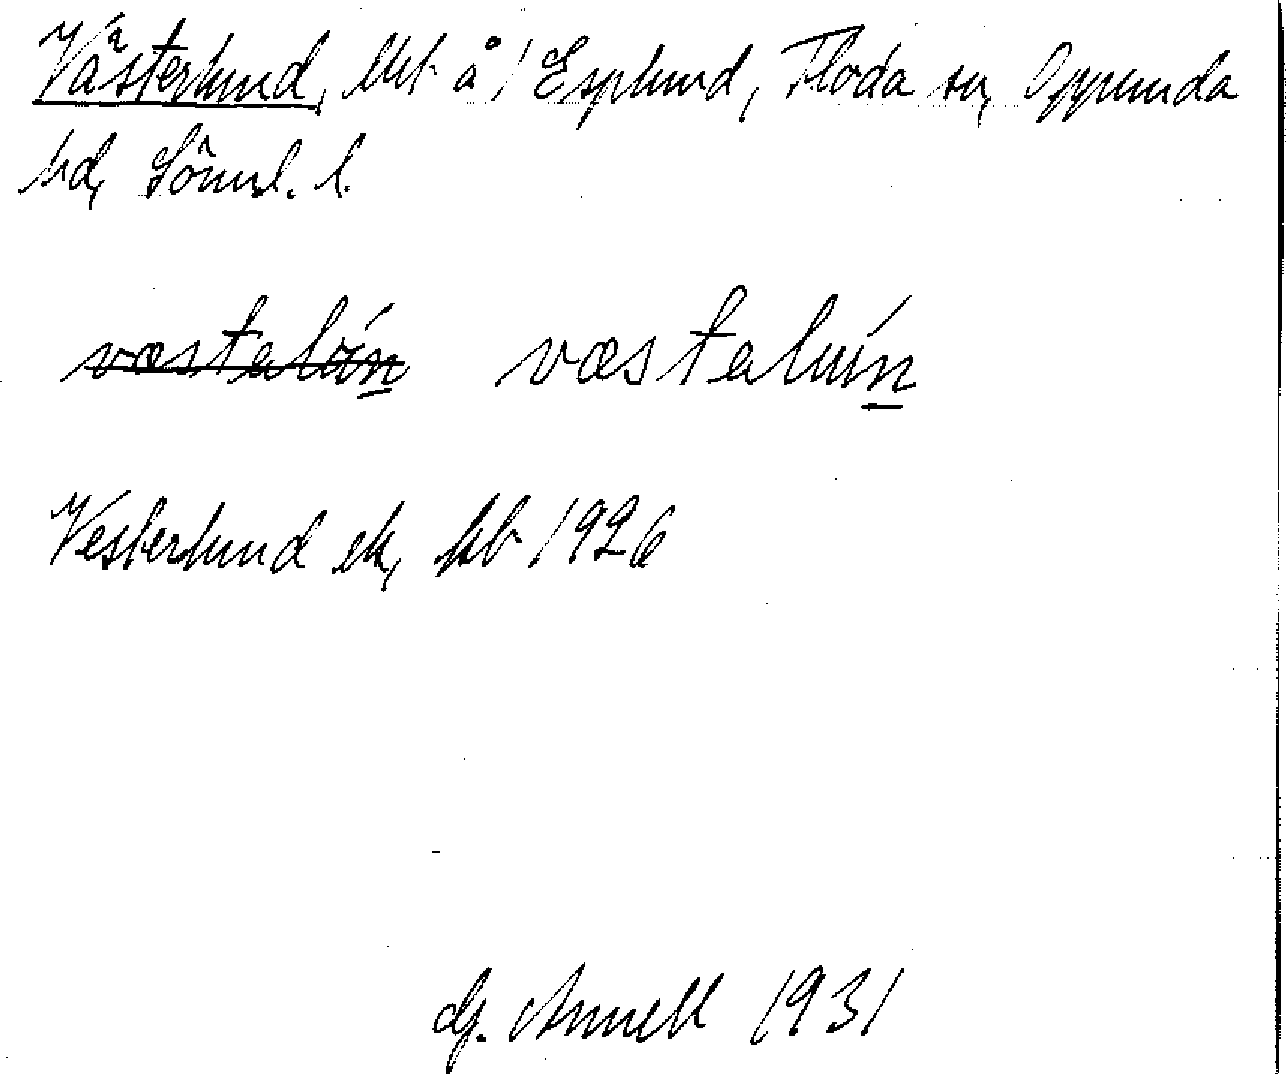 Västerlund, lht å 1 Esplund, Floda sn, Oppunda
hd, Södml. l.
væstaluń væstaluń
Vesterlund ek, kb 1926
G. Annell 1931